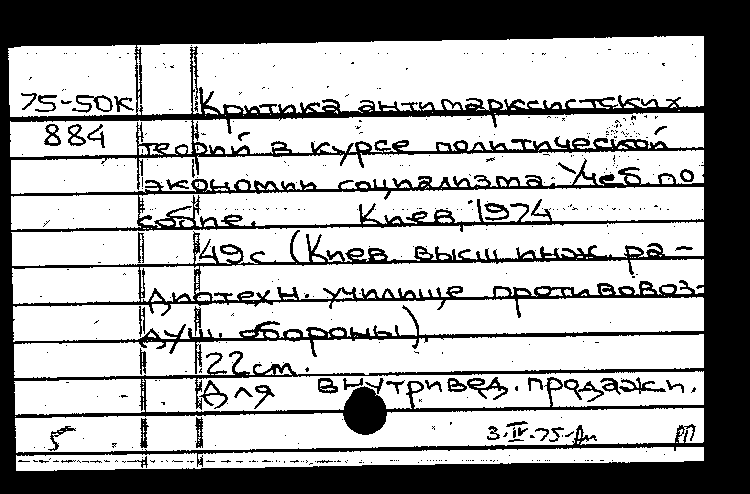 75-50к Критика антимарксистских
884 теорий в курсе политической
экономии социализма. Учеб. по-
собие. Киев, 1974
49с (Киев. высш. инж. ра-
диотехн. училище противовоз-
душ. обороны).
22 см.
Для внутривед. продажи.
5 3.IV.75-Дп РП